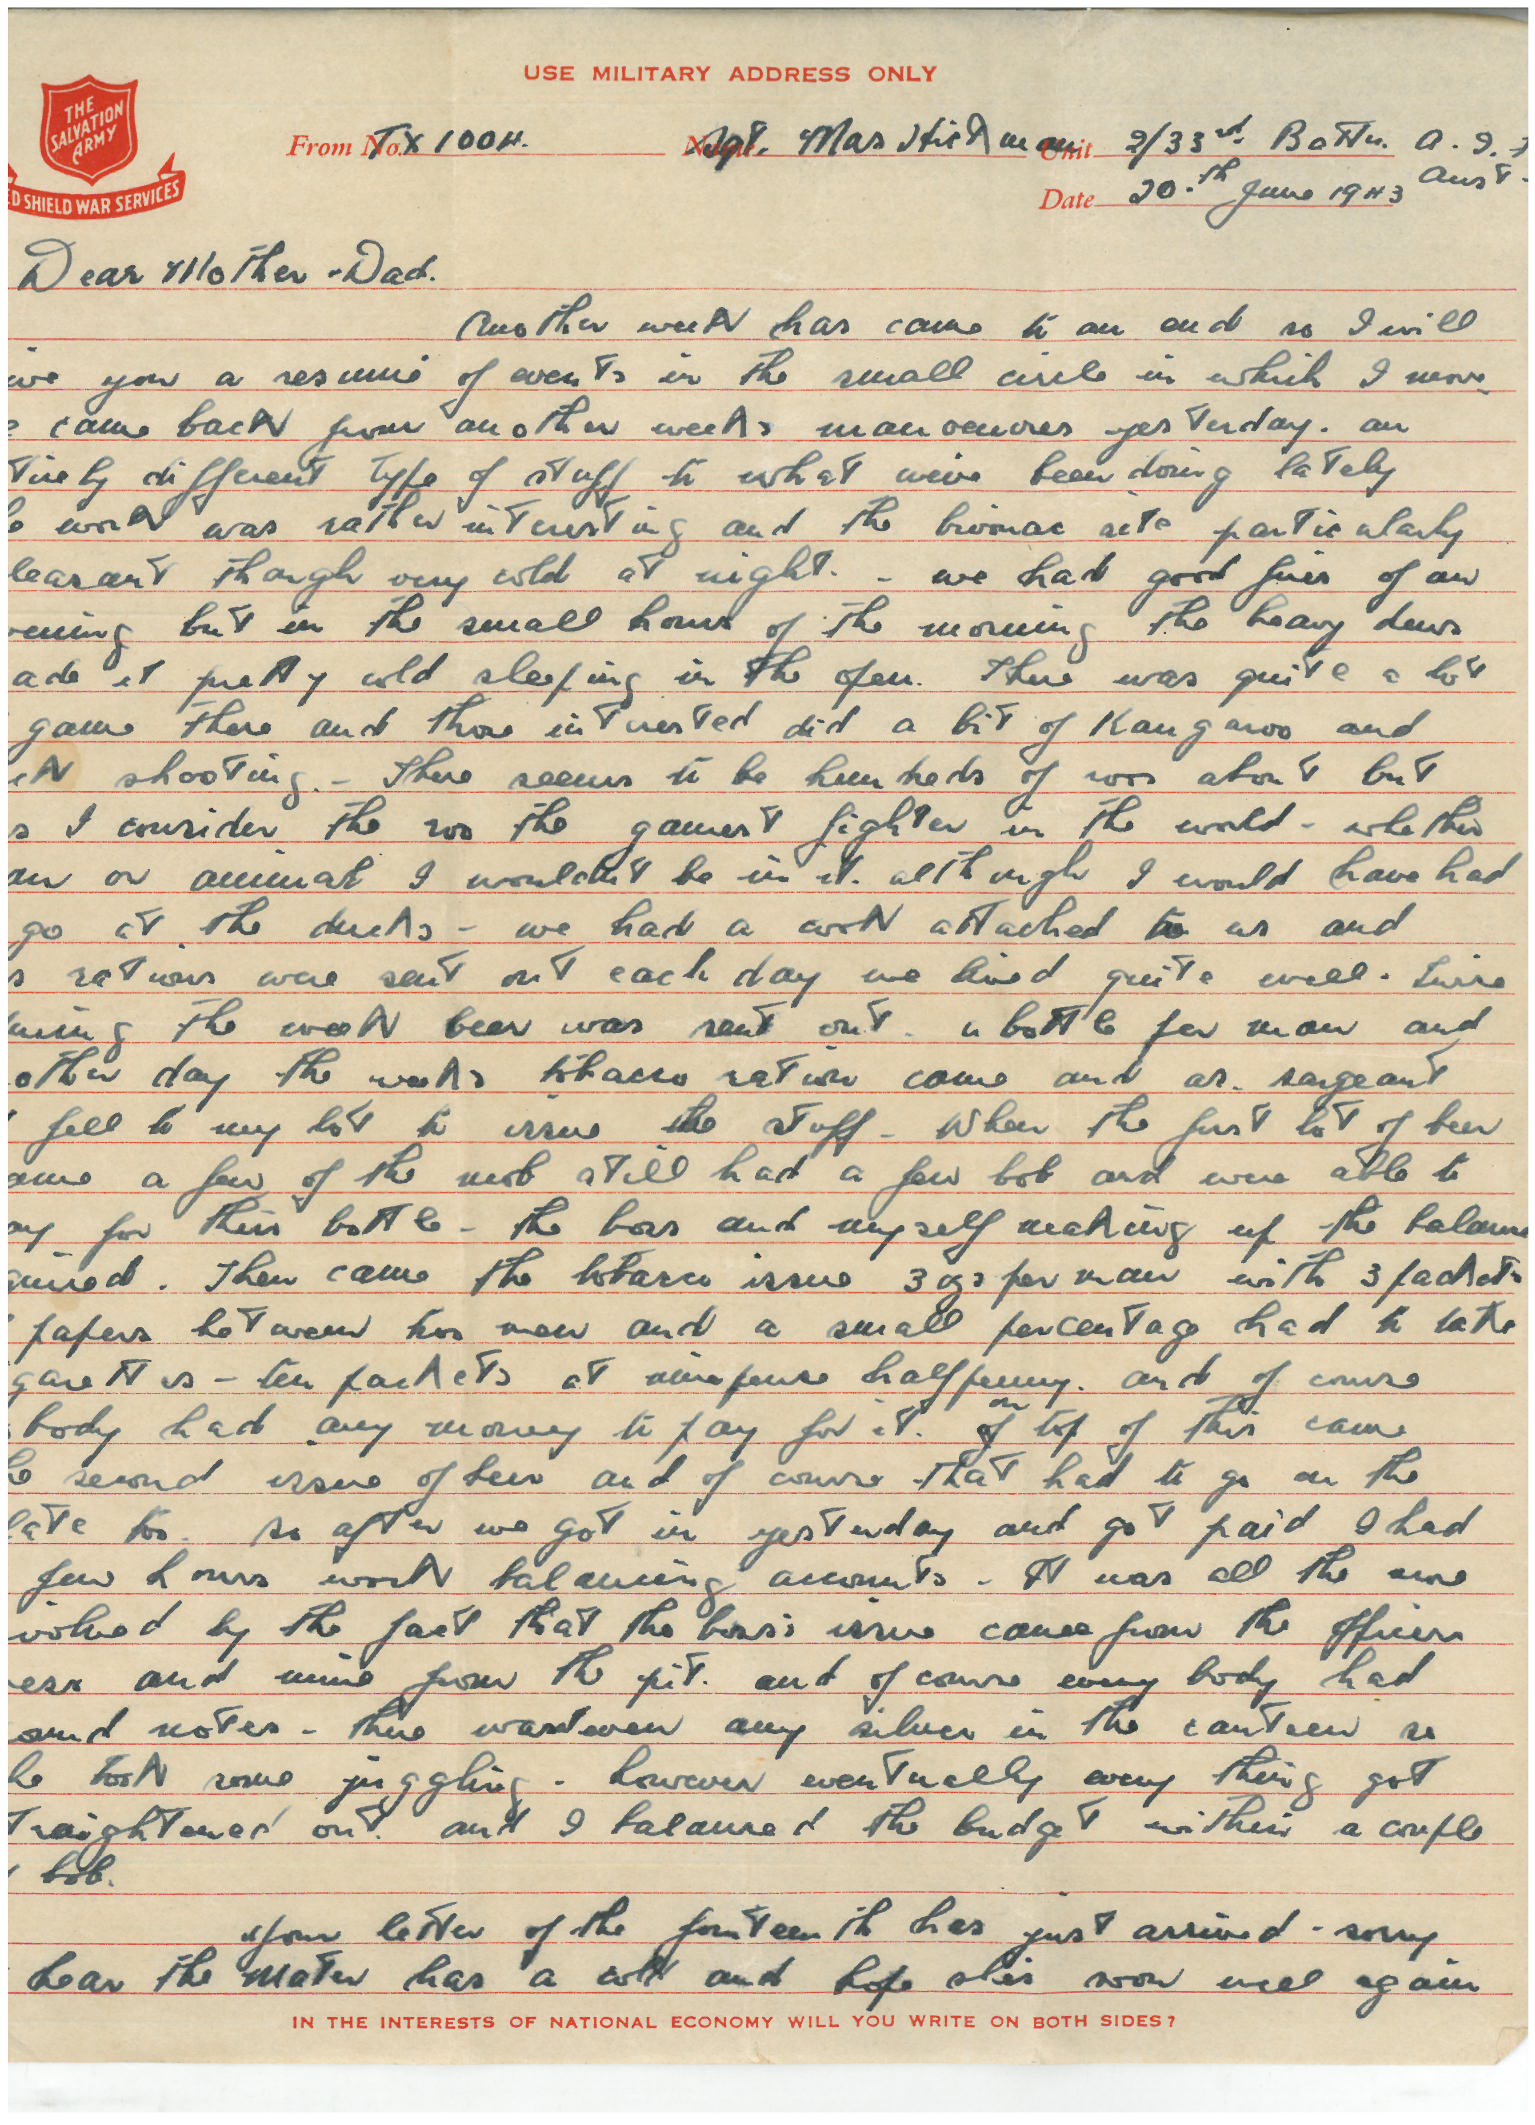 USE MILITARY ADDRESS ONLY
THE
SALVATION
ARMY
ED SHIELD WAR SERVICES
From No. TX 1004. Name Sgt. Mas Hickman Unit 2/33rd. Battn. A.I.F
Aust.
Date 20.th June 1943
Dear Mother - Dad.
Another week has came to an end so I will
ive you a resumé of events in the small circle in which I move
e came back from another weeks manoeuvres yesterday. an
tirely different type of stuff to what we've been doing lately
e work was rather interesting and the bivouac site particularly
leasant though very cold at night. - we had good fires of an
vening but in the small hours of the morning the heavy dews
ade it pretty cold sleeping in the open. There was quite a lot
game there and those interested did a bit of Kangaroo and
ck shooting. - There seems to be hundreds of roos about but
s I consider the roo the gamest fighter in the world - whether
an or animal I wouldn't be in it. although I would have had
go at the ducks - we had a cook attached to us and
s rations were sent out each day we lived quite well. Twice
uring the week beer was sent out. a bottle per man and
other day the weeks tobacco ration came and as. sargeant
fell to my lot to issue the stuff - When the first lot of beer
ame a few of the mob still had a few bob and were able to
ay for their bottle - the boss and myself making up the balance
quired. Then came the tobacco issue 3 ozs per man with 3 packets
papers between two men and a small percentage had to take
garettes - ten packets at ninepence halfpenny. and of course
body had any money to pay for it. on top of this came
he second issue of beer and of course that had to go on the
late too. so after we got in yesterday and got paid I had
few hours work balancing accounts - It was all the more
volved by the fact that the boss's issue came from the officers
ess and mine from the pit. and of course every body had
ound notes - there wasnt even any silver in the canteen so
he took some juggling - however eventually every thing got
traightened out. and I balanced the budget within a couple
bob.
Your letter of the fourteenth has just arrived - sorry
hear the Mater has a cold and hope shes soon well again
IN THE INTERESTS OF NATIONAL ECONOMY WILL YOU WRITE ON BOTH SIDES?